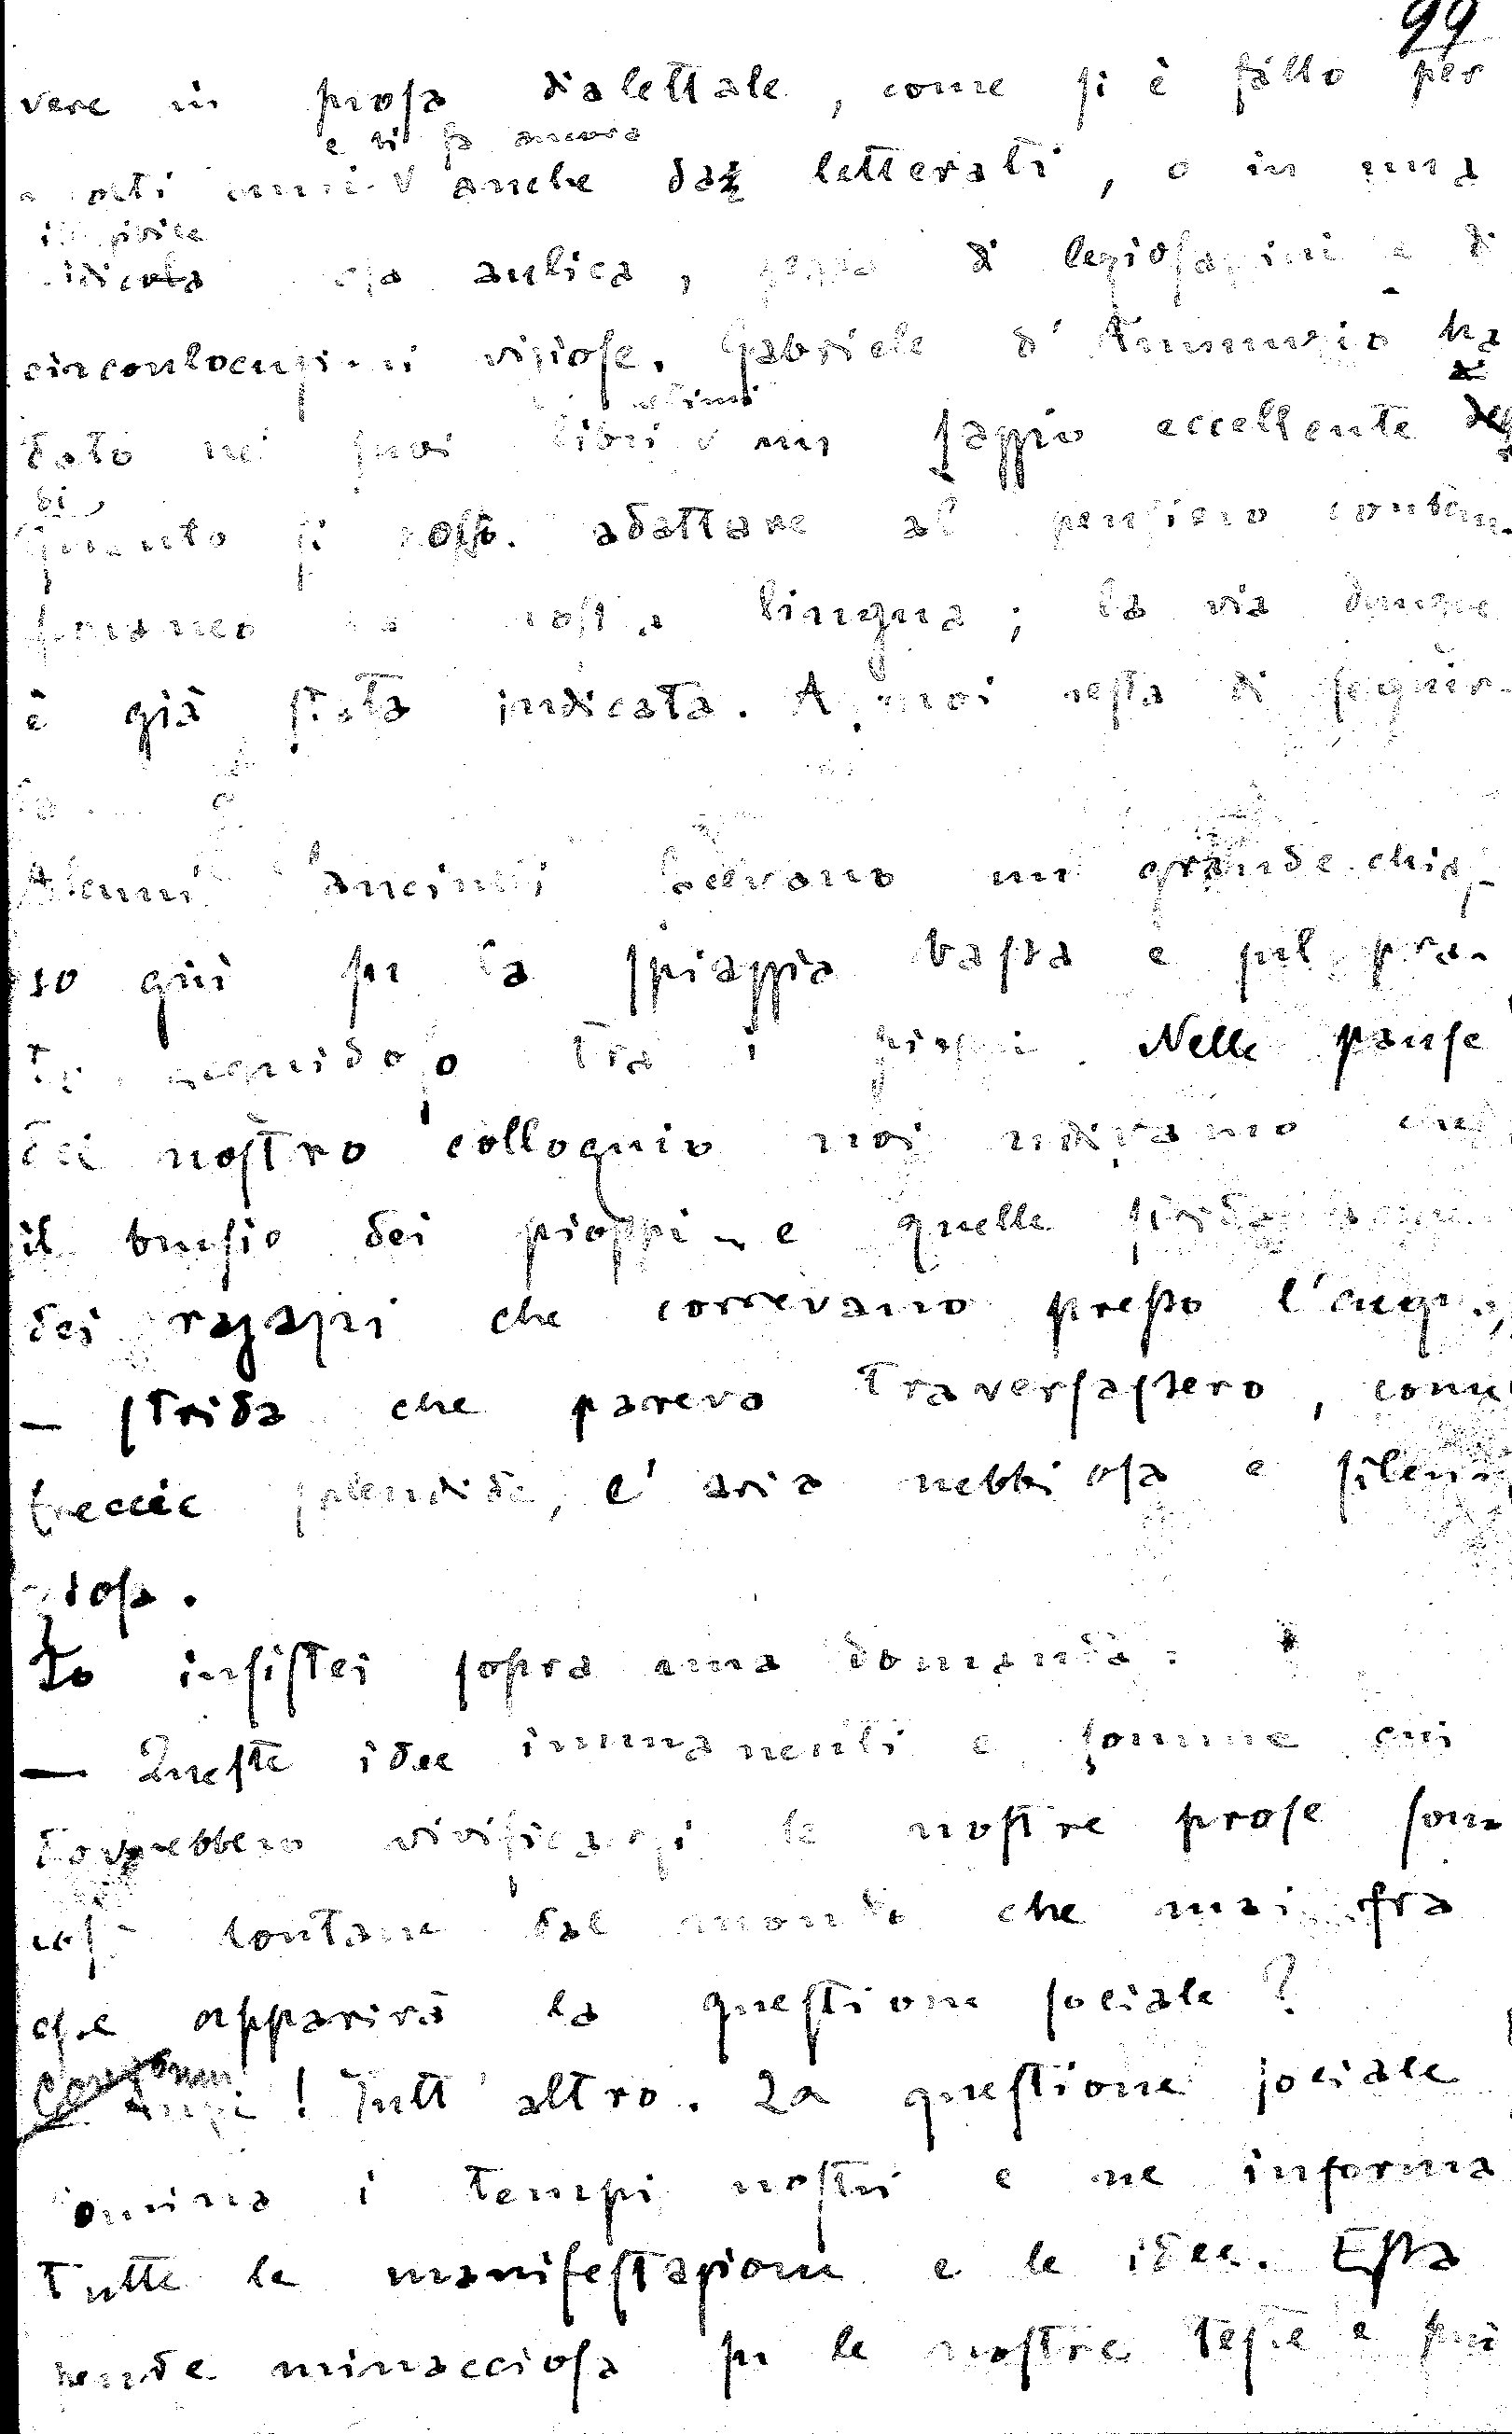 99
vere in prosa dialettale, come si è fatto per
e si fa ancora
molti anni anche da letterati, o in una
aulica, di leziosaggini e di
circonlocuzioni viziose. Gabriele d'Annunzio ha
ultimi
dato nei suoi libri un saggio eccellente
di
quanto si adattare al pensiero contem-
poraneo la nostra lingua; la via dunque
è già stata indicata. A noi resta di seguir-
la.
Alcuni fanciulli facevano un grande chias-
so qui su la spiaggia vasta e sul pra-
to tra i pioppi. Nelle pause
del nostro colloquio noi udivamo
il brusio dei pioppi e quelle strida
dei ragazzi che correvano presso l'acqua,
— strida che pareva traversassero, come
freccie splendide, l'aria nebbiosa e silen-
ziosa.
Io insistei sopra una domanda:
— Queste idee immanenti e somme cui
dovrebbero vivificarsi le nostre prose son
così lontane dal mondo che mai fra
esse apparirà la questione sociale?
Anzi! Tutt'altro. La questione sociale
domina i tempi nostri e ne informa
tutte le manifestazioni e le idee. Essa
pende minacciosa su le nostre teste e più